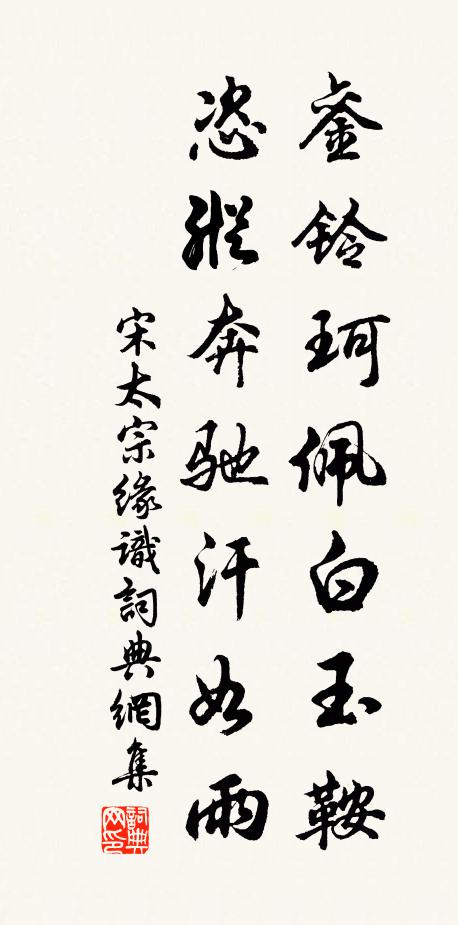 銮铃珂佩白玉鞍
恣纵奔驰汗如雨
宋太宗緣識詞典網集
詞典網印